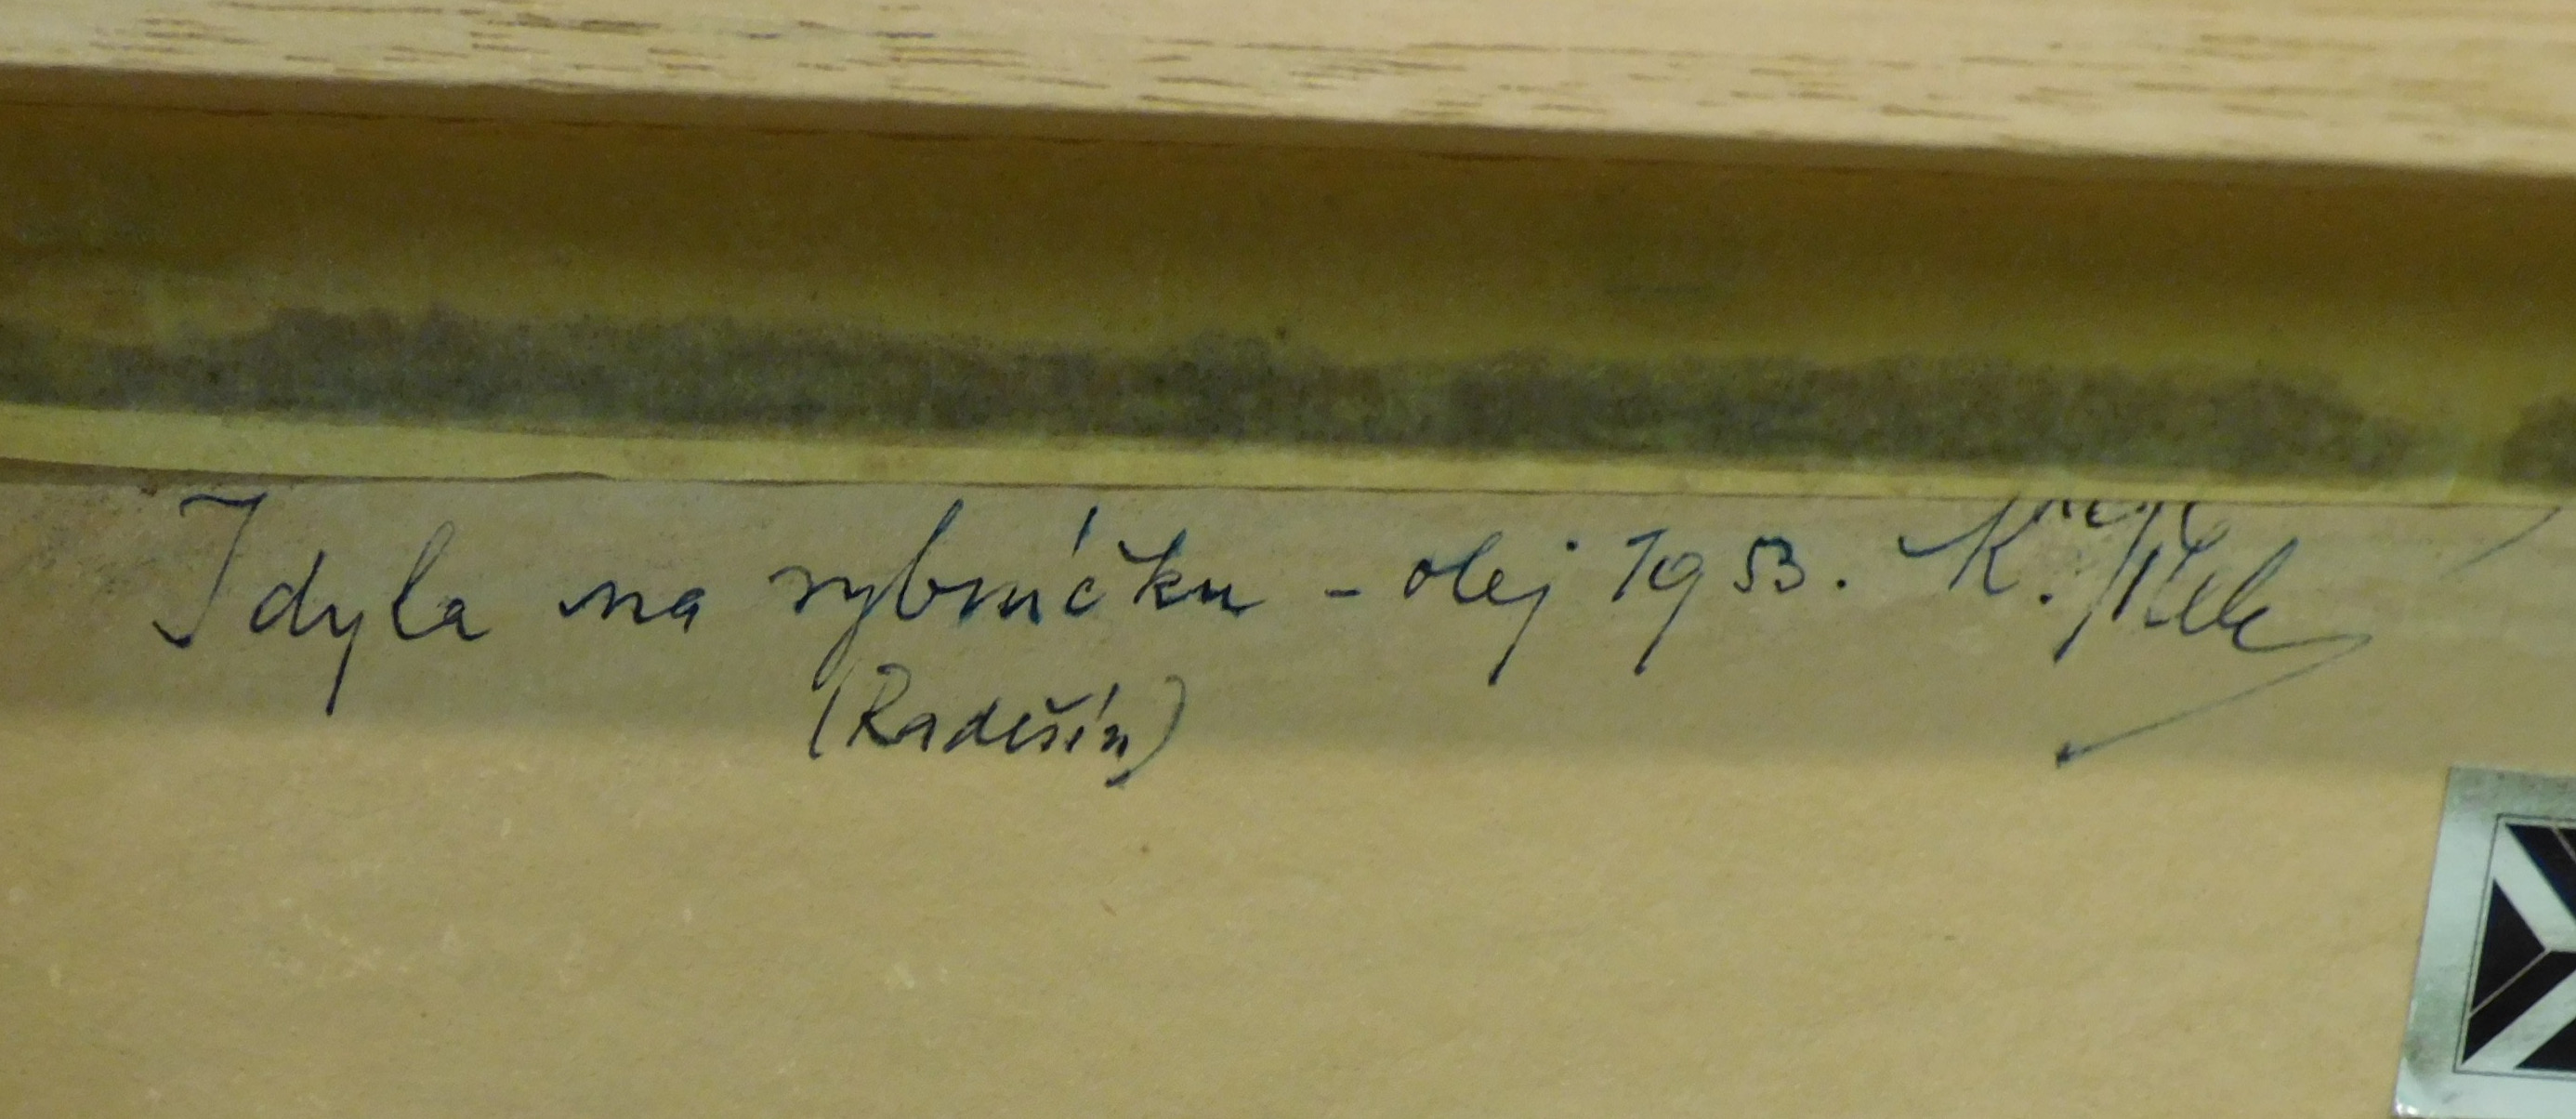 Idyla na rybníčku - olej 1953. K.
(Radešín)